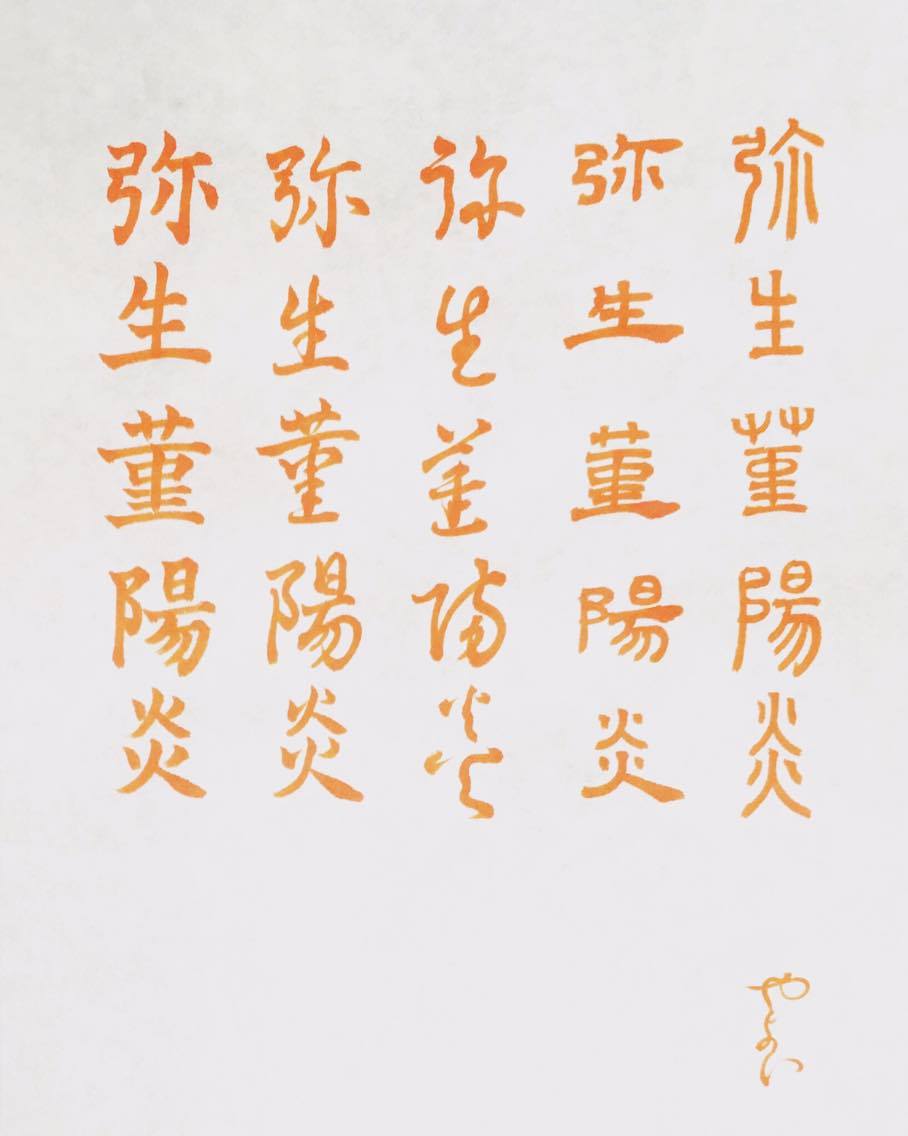 弥生菫陽炎
弥生菫陽炎
弥生菫陽炎
弥生菫陽炎
弥生菫陽炎
やよい